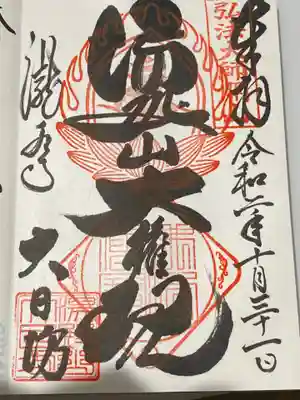 弘法大師
奉拝
令和二年十月三十一日
湯殿山大権現
瀧水寺
大日坊